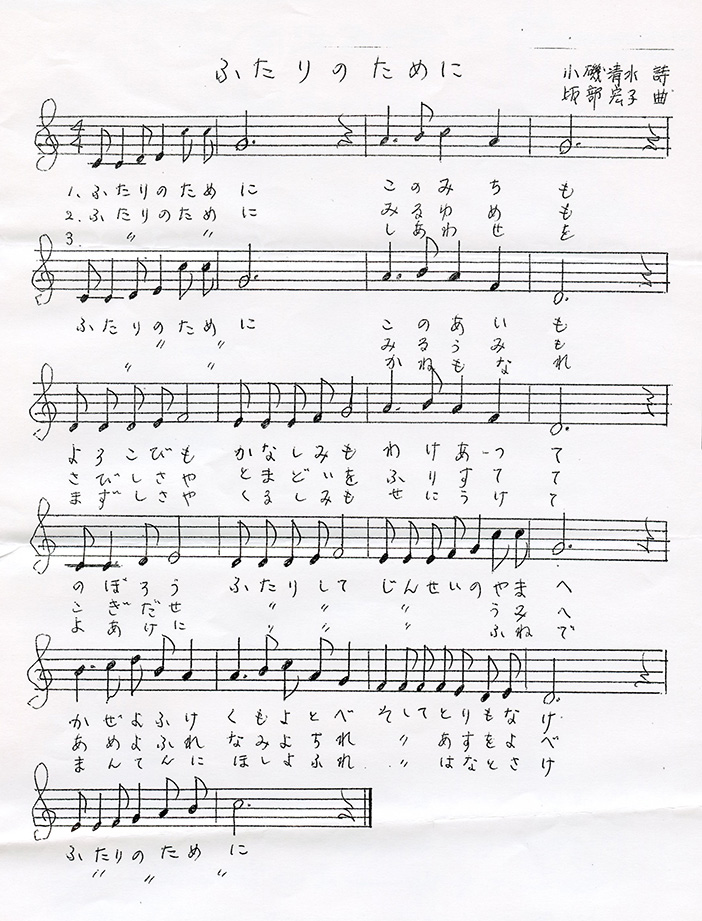 ふたりのために
小磯清水 詩
坂部宏子 曲
4
4
1. ふたりのために このみちも
2. ふたりのために みるゆめも
3. 〃 〃 しあわせを
ふたりのために このあいも
〃 〃 みるうみも
〃 〃 かねもなれ
よろこびも かなしみも わけあって
さびしさや とまどいを ふりすてて
まずしさや くるしみも せにうけて
のぼろう ふたりして じんせいのやまへ
こぎだせ 〃 〃 〃 うみへ
よあけに 〃 〃 〃 ふねで
かぜよふけ くもよとべ そしてとりもなけ
あめよふれ なみよちれ 〃 あすをよべ
まんてんに ほしよふれ 〃 はなとさけ
ふたりのために
〃 〃 〃